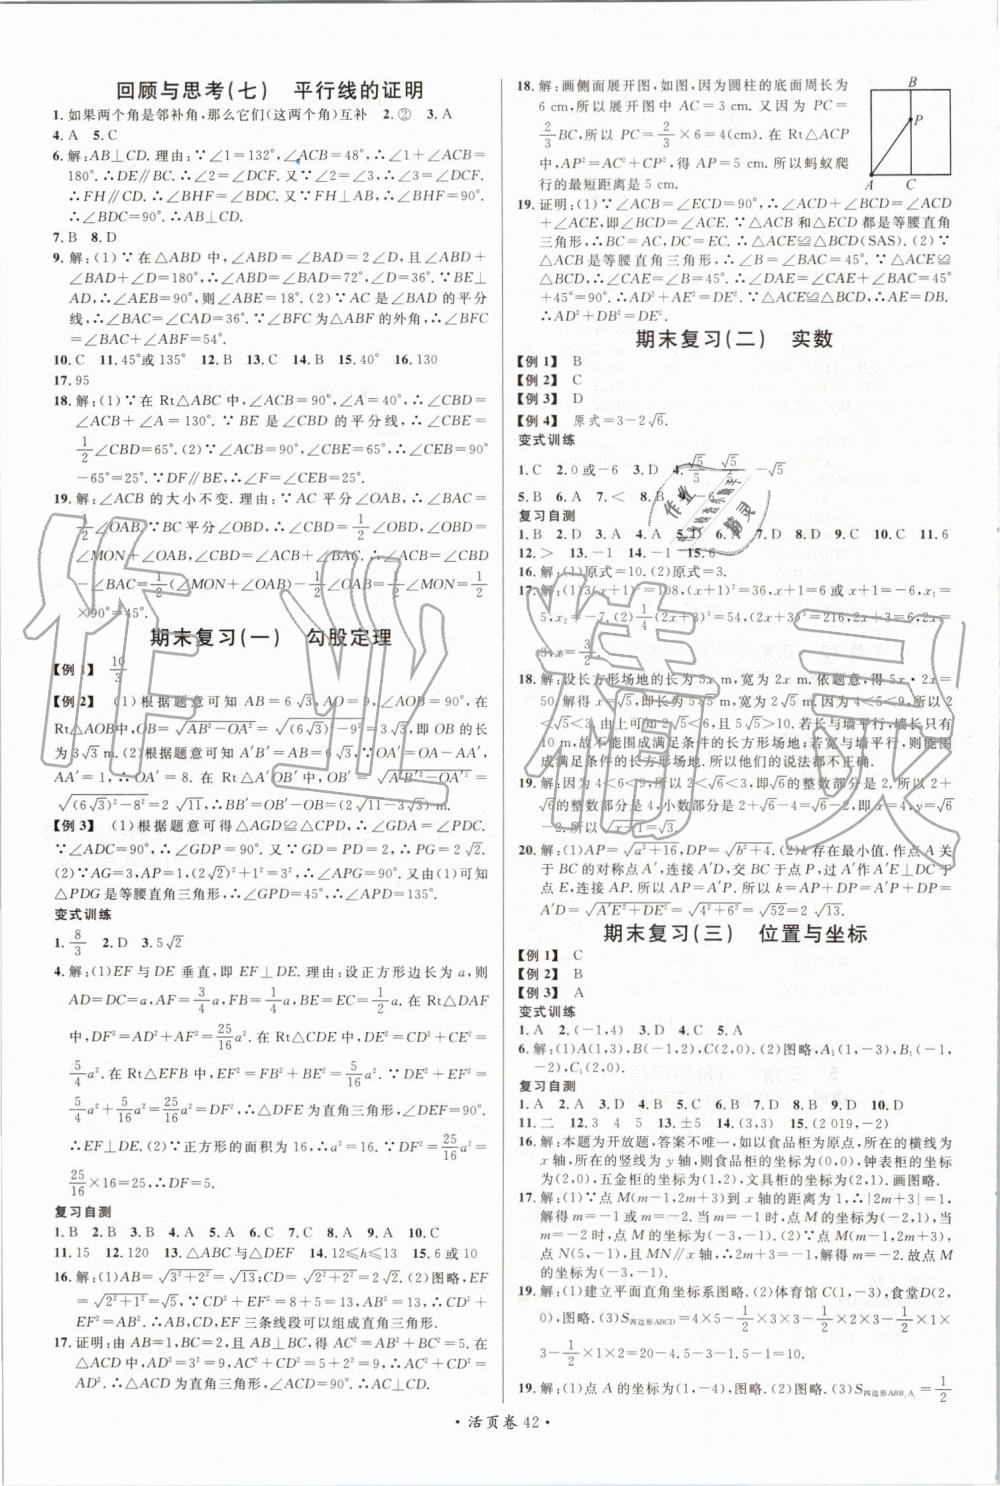 回顾与思考(七) 平行线的证明
1. 如果两个角是邻补角,那么它们(这两个角)互补 2. ② 3. A
4. A 5. C
6. 解:AB⊥CD. 理由:∵∠1=132°,∠ACB=48°,∴∠1+∠ACB=
180°. ∴DE∥BC. ∴∠2=∠DCF. ∵∠2=∠3,∴∠3=∠DCF.
∴FH∥CD. ∴∠BHF=∠BDC. ∵FH⊥AB,∴∠BHF=90°.
∴∠BDC=90°. ∴AB⊥CD.
7. B 8. D
9. 解:(1)∵在△ABD 中,∠ABD=∠BAD=2∠D,且∠ABD+
∠BAD+∠D=180°,∴∠ABD=∠BAD=72°,∠D=36°. ∵BE⊥
AD,∴∠AEB=90°,则∠ABE=18°. (2)∵AC 是∠BAD 的平分
线,∴∠BAC=∠CAD=36°. ∵∠BFC 为△ABF 的外角,∴∠BFC=
∠BAC+∠ABF=54°.
10. C 11. 45°或 135° 12. B 13. C 14. B 15. 40° 16. 130
17. 95
18. 解:(1)∵在 Rt△ABC 中,∠ACB=90°,∠A=40°,∴∠CBD=
∠ACB+∠A=130°. ∵BE 是∠CBD 的平分线,∴∠CBE=
1/2∠CBD=65°. (2)∵∠ACB=90°,∠CBE=65°,∴∠CEB=90°-
65°=25°. ∵DF∥BE,∴∠F=∠CEB=25°.
19. 解:∠ACB 的大小不变. 理由:∵AC 平分∠OAB,∴∠BAC=
1/2∠OAB. ∵BC 平分∠OBD,∴∠CBD=1/2∠OBD. ∵∠OBD=
∠MON+∠OAB,∠CBD=∠ACB+∠BAC,∴∠ACB=∠CBD
-∠BAC=1/2(∠MON+∠OAB)-1/2∠OAB=1/2∠MON=1/2
×90°=45°.
期末复习(一) 勾股定理
【例 1】 10/3
【例 2】 (1)根据题意可知 AB=6√3,AO=9,∠AOB=90°,在
Rt△AOB中,OB=√(AB²-OA²)=√((6√3)²-9²)=3√3,即 OB 的长
为3√3 m. (2)根据题意可知 A′B′=AB=6√3,∵OA′=OA-AA′,
AA′=1,∴OA′=8. 在 Rt△A′OB′中,OB′=√(A′B′²-OA′²)=
√((6√3)²-8²)=2√11,∴BB′=OB′-OB=(2√11-3√3)m.
【例 3】 (1)根据题意可得△AGD≌△CPD,∴∠GDA=∠PDC.
∵∠ADC=90°,∴∠GDP=90°. 又∵DG=DP=2,∴PG=2√2.
(2)∵AG=3,AP=1,(2√2)²+1²=3²,∴∠APG=90°. 又由(1)可知
△PDG 是等腰直角三角形,∴∠GPD=45°,∴∠APD=135°.
变式训练
1. 8/3 2. D 3. 5√2
4. 解:(1)EF 与 DE 垂直,即 EF⊥DE. 理由:设正方形边长为 a,则
AD=DC=a,AF=3/4a,FB=1/4a,BE=EC=1/2a. 在 Rt△DAF
中,DF²=AD²+AF²=25/16a². 在 Rt△CDE 中,DE²=CD²+CE²=
5/4a². 在 Rt△EFB 中,EF²=FB²+BE²=5/16a². ∵DE²+EF²=
5/4a²+5/16a²=25/16a²=DF²,∴△DFE 为直角三角形,∠DEF=90°.
∴EF⊥DE. (2)∵正方形的面积为 16,∴a²=16. ∴DF²=25/16a²=
25/16×16=25,∴DF=5.
复习自测
1. B 2. B 3. B 4. B 5. A 6. C 7. B 8. A 9. A 10. C
11. 15 12. 120 13. △ABC 与△DEF 14. 12≤h≤13 15. 6 或 10
16. 解:(1)AB=√(3²+2²)=√13;CD=√(2²+2²)=2√2. (2)图略,EF
=√(2²+1²)=√5,∵CD²+EF²=8+5=13,AB²=13,∴CD²+
EF²=AB²,∴AB,CD,EF 三条线段可以组成直角三角形.
17. 证明:由 AB=1,BC=2,且∠B=90°,得 AC²=AB²+BC²=5. 在
△ACD 中,AD²=9,AC²+CD²=5+2²=9,∴AC²+CD²=
AD². ∴△ACD 为直角三角形,∠ACD=90°. ∴AC⊥CD.
18. 解:画侧面展开图,如图,因为圆柱的底面周长为
6 cm,所以展开图中 AC=3 cm. 又因为 PC=
2/3BC,所以 PC=2/3×6=4(cm). 在 Rt△ACP
中,AP²=AC²+CP²,得 AP=5 cm. 所以蚂蚁爬
行的最短距离是 5 cm.
B
P
A C
19. 证明:(1)∵∠ACB=∠ECD=90°,∴∠ACD+∠BCD=∠ACD
+∠ACE,即∠BCD=∠ACE. ∵△ACB 和△ECD 都是等腰直角
三角形,∴BC=AC,DC=EC. ∴△ACE≌△BCD(SAS). (2)∵
△ACB 是等腰直角三角形,∴∠B=∠BAC=45°. ∵△ACE≌
△BCD,∴∠B=∠CAE=45°. ∴∠DAE=∠CAE+∠BAC=45°
+45°=90°. ∴AD²+AE²=DE². ∵△ACE≌△BCD,∴AE=DB.
∴AD²+DB²=DE².
期末复习(二) 实数
【例 1】 B
【例 2】 C
【例 3】 D
【例 4】 原式=3-2√6.
变式训练
1. C 2. 0 或-6 3. D 4. √5/5 √5/5 -√5
5. B 6. A 7. < 8. B -6
复习自测
1. B 2. D 3. A 4. C 5. D 6. A 7. D 8. D 9. C 10. C 11. 6
12. > 13. -1 14. -1 15. 6
16. 解:(1)原式=10. (2)原式=3.
17. 解:(1)3(x+1)²=108,(x+1)²=36,x+1=±6,x₁=
5,x₂=-7. (2)1/4(2x+3)³=54,(2x+3)³=216,2x+3=6,2x=
3,x=3/2.
18. 解:设长方形场地的长为 5x m,宽为 2x m. 依题意,得 5x·2x=
50,解得 x=√5. 即长为 5√5 m,宽为 2√5 m. ∵4<5<9,∴2<√5
<3. 由上可知 2√5<6,且 5√5>10. 若长与墙平行,墙长只有
10 m,故不能围成满足条件的长方形场地;若宽与墙平行,则能围
成满足条件的长方形场地. 所以他们的说法都不正确.
19. 解:因为 4<6<9,所以 2<√6<3,即√6的整数部分是 2. 所以 2+
√6的整数部分是 4,小数部分是 2+√6-4=√6-2,即 x=4,y=√6
-2. 所以√(x-1)=√3.
20. 解:(1)AP=√(a²+16),DP=√(b²+4). (2)k 存在最小值. 作点 A 关
于 BC 的对称点 A′,连接 A′D,交 BC 于点 P,过点 A′作 A′E⊥DC 于
点 E,连接 AP. 所以 AP=A′P. 所以 k=AP+DP=A′P+DP=
A′D=√(A′E²+DE²)=√(4²+6²)=√52=2√13.
期末复习(三) 位置与坐标
【例 1】 C
【例 2】 B
【例 3】 A
变式训练
1. A 2. (-1,4) 3. D 4. C 5. A
6. 解:(1)A(1,3),B(-1,2),C(2,0). (2)图略,A₁(1,-3),B₁(-1,
-2),C₁(2,0).
复习自测
1. A 2. D 3. B 4. A 5. D 6. D 7. D 8. B 9. D 10. D
11. 二 12. 3 4 5 13. ±5 14. (3,3) 15. (2 019,-2)
16. 解:本题为开放题,答案不唯一,如以食品柜为原点,所在的横线为
x 轴,所在的竖线为 y 轴,则食品柜的坐标为(0,0),钟表柜的坐标
为(2,0),五金柜的坐标为(1,2),文具柜的坐标为(2,1). 画图略.
17. 解:(1)∵点 M(m-1,2m+3)到 x 轴的距离为 1,∴|2m+3|=1,
解得 m=-1 或 m=-2. 当 m=-1 时,点 M 的坐标为(-2,1),当
m=-2 时,点 M 的坐标为(-3,-1). 综上,点 M 的坐标为
(-2,1)或(-3,-1). (2)∵点 M(m-1,2m+3),
点 N(5,-1)且 MN∥x 轴,∴2m+3=-1,解得 m=-2. 故点 M
的坐标为(-3,-1).
19. 解:(1)建立平面直角坐标系图略. (2)体育馆 C(1,-3),食堂D(2,
0),图略. (3)S四边形ABCD=4×5-1/2×3×3-1/2×2×3-1/2×1×
3-1/2×1×2=20-4.5-3-1.5-1=10.
19. 解:(1)点 A 的坐标为(1,-4),图略. (2)图略. (3)S四边形ABB₁A₁=1/2
·活页卷 42·
作业精灵
作业
精灵